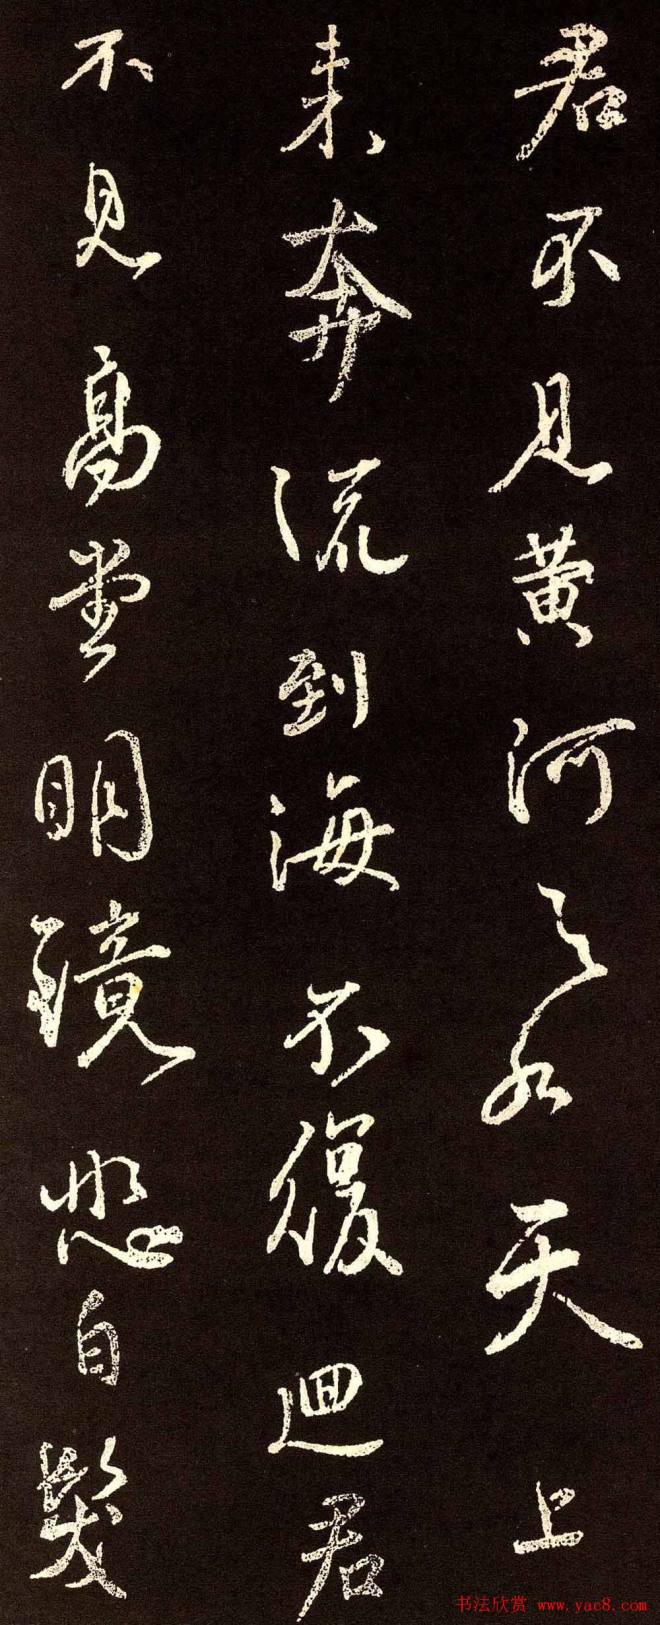 君不見黄河之水天上
来奔流到海不復迴君
不見高堂明鏡悲白髮
书法欣赏 www.yac8.com